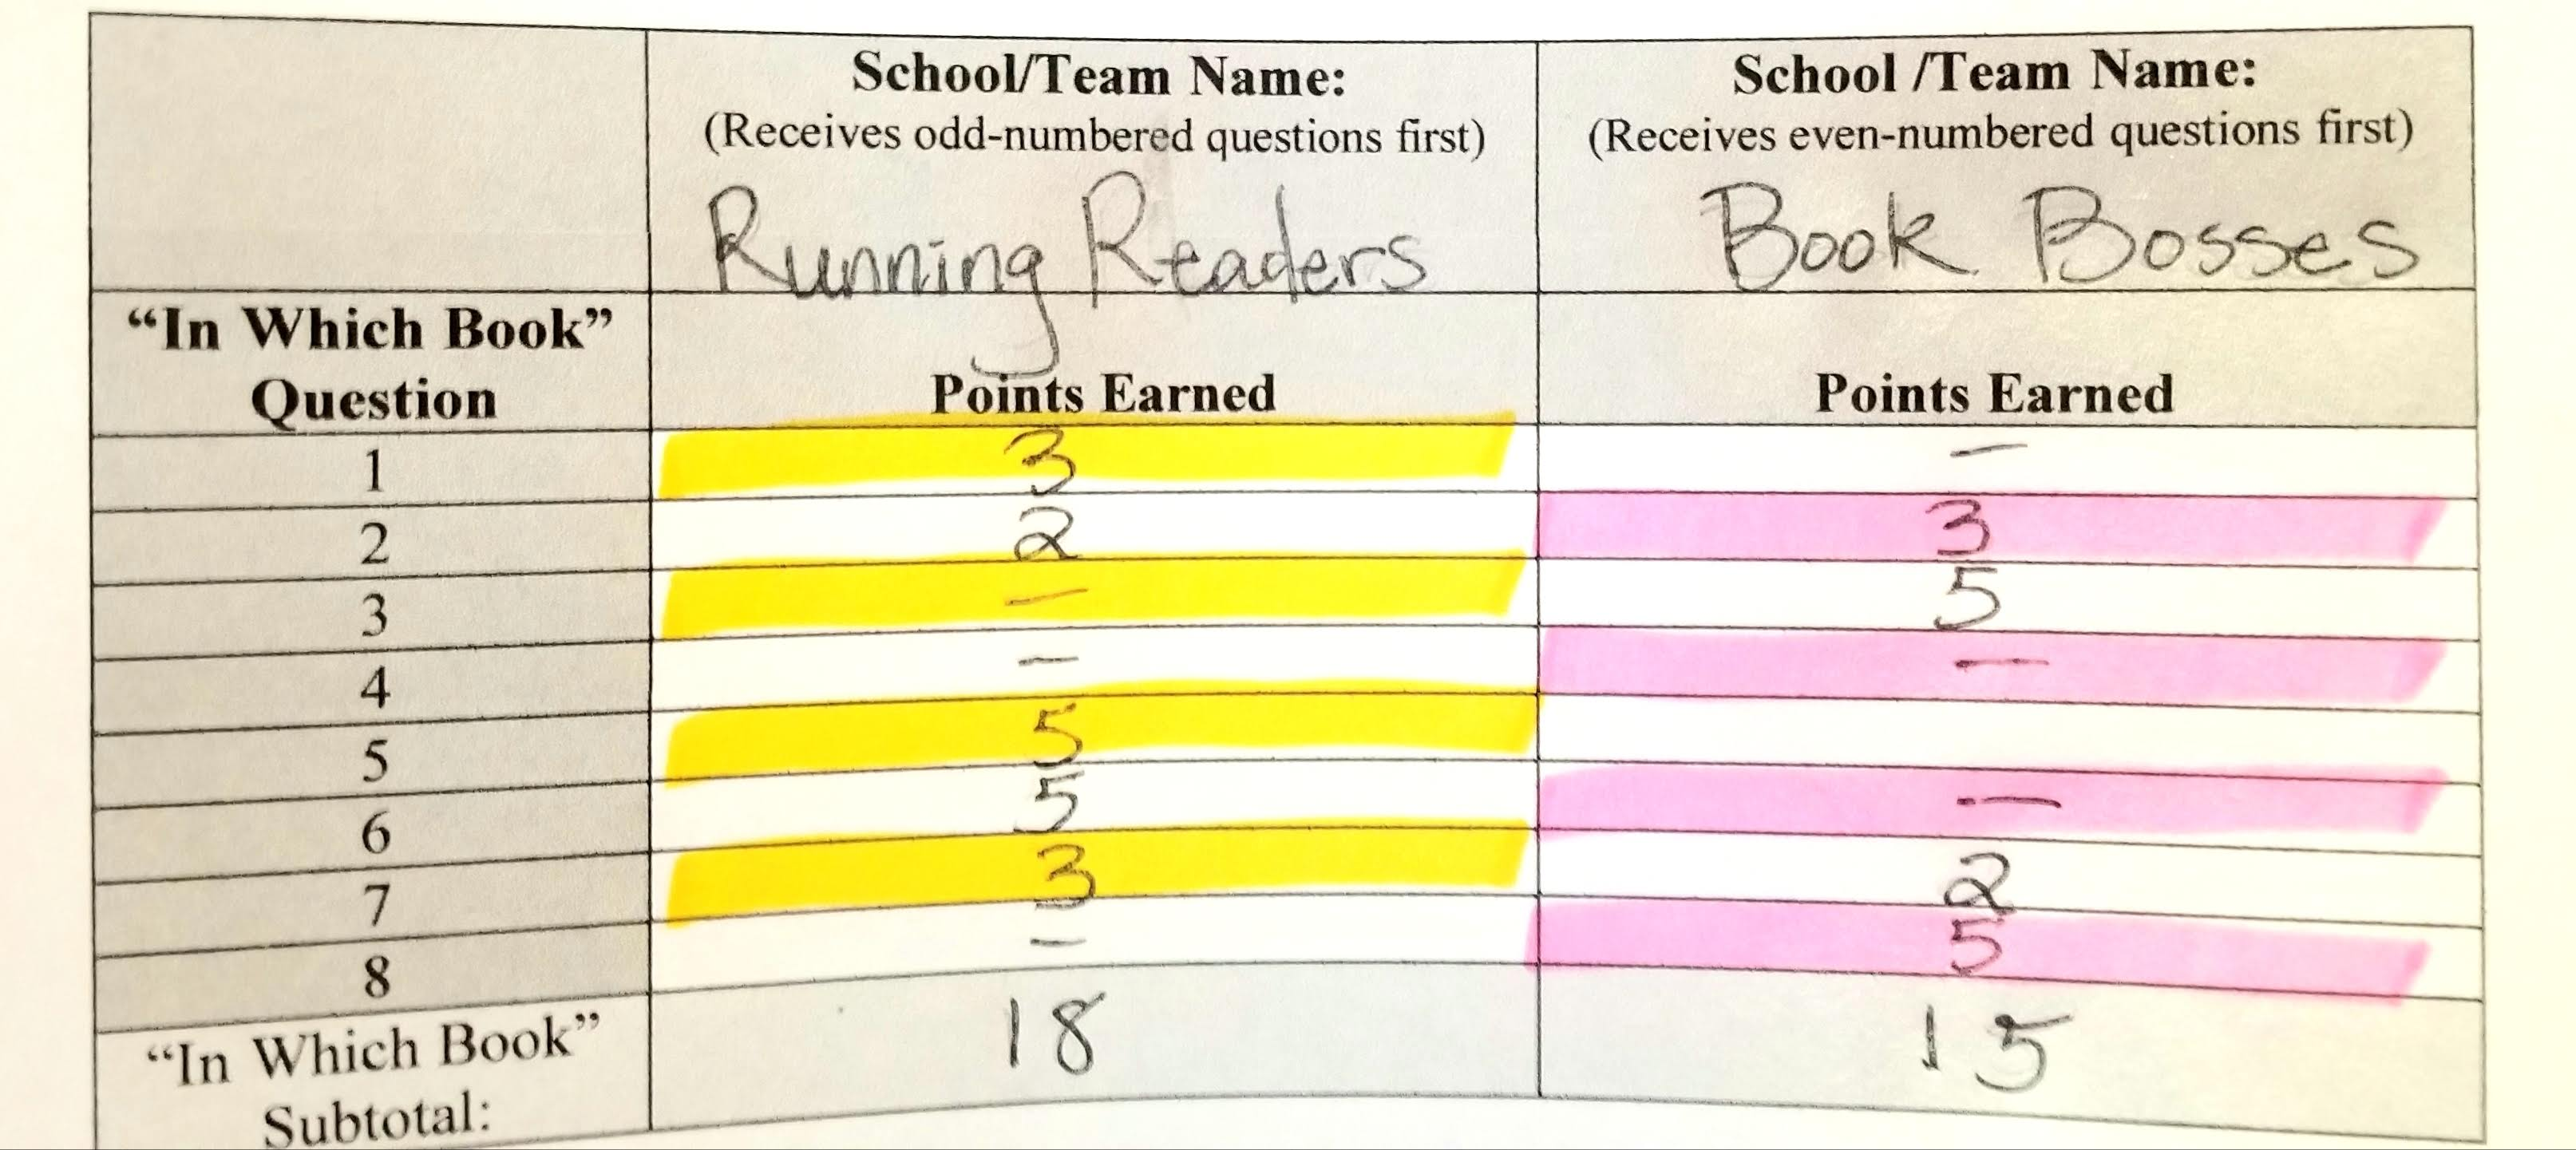 School/Team Name:
(Receives odd-numbered questions first)
Running Readers
School /Team Name:
(Receives even-numbered questions first)
Book Bosses
“In Which Book”
Question
Points Earned
Points Earned
1 3 –
2 2 3
3 – 5
4 – –
5 5
6 5 –
7 3 2
8 – 5
“In Which Book”
Subtotal:
18
15